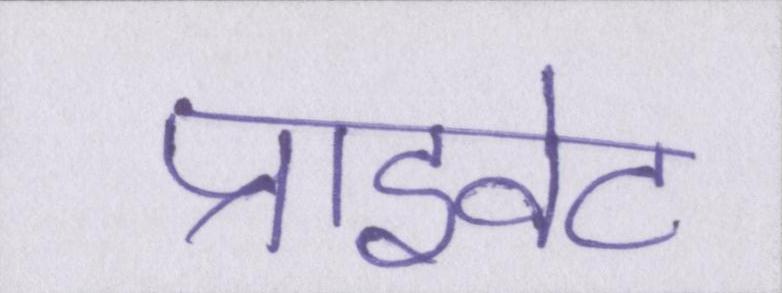 प्राइवेट